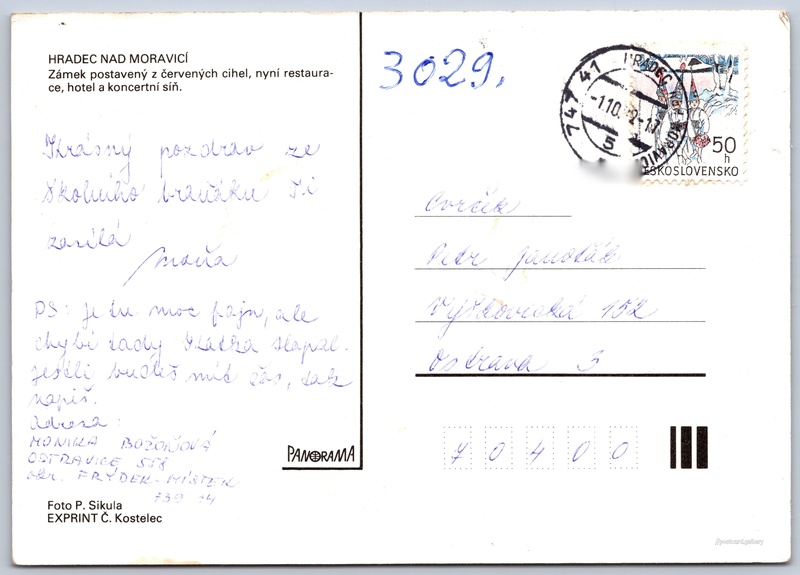 HRADEC NAD MORAVICÍ
Zámek postavený z červených cihel, nyní restaura-
ce, hotel a koncertní síň.
Krásný pozdrav ze
školního braňáku Ti
zasílá
Moňa
PS: je tu moc fajn, ale
chybí tady
Jestli budeš mít čas, tak
napiš.
Adresa:
MONIKA BOŽOŇOVÁ
OSTRAVICE 558
okr. FRÝDEK-MÍSTEK
739 14
Foto P. Sikula
EXPRINT Č. Kostelec
PANORAMA
3029.
747 41 HRADEC NAD MORAVICÍ
-1.10. 2-17
5
50
h
ČESKOSLOVENSKO
Cvrček
Petr Janoťák
Výškovická 152
Ostrava 3
7 0 4 0 0
@postcard.gallery